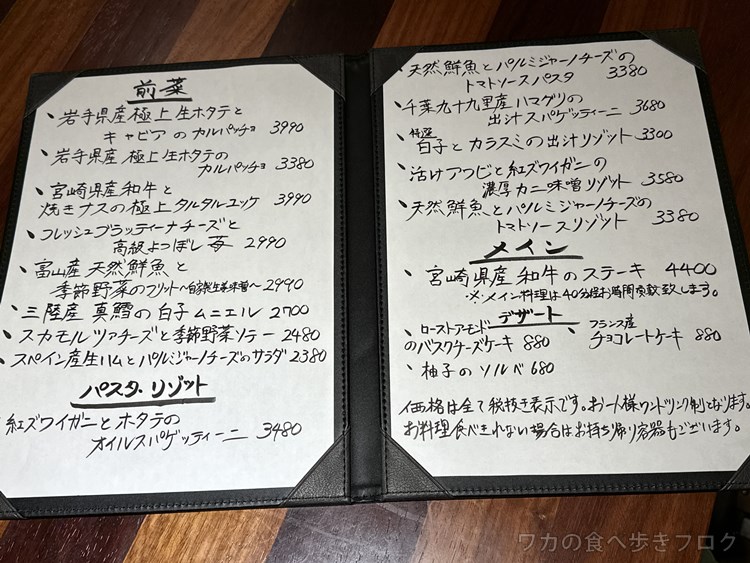 前菜
、岩手県産極上生ホタテと
キャビアのカルパッチョ 3990
、岩手県産極上生ホタテの
カルパッチョ 3380
、宮崎県産和牛と
焼きナスの極上タルタルユッケ 3990
、フレッシュブラッティーナチーズと
高級よつぼし苺 2990
、富山産天然鮮魚と
季節野菜のフリット〜自家製生姜味噌〜 2990
、三陸産 真鱈の白子ムニエル 2700
、スカモルツァチーズと季節野菜ソテー 2480
、スペイン産生ハムとパルミジャーノチーズのサラダ 2380
パスタ・リゾット
紅ズワイガニとホタテの
オイルスパゲッティーニ 3480
、天然鮮魚とパルミジャーノチーズの
トマトソースパスタ 3380
、千葉九十九里産ハマグリの
出汁スパゲッティーニ 3680
、特選
白子とカラスミの出汁リゾット 3300
、活けアワビと紅ズワイガニの
濃厚カニ味噌リゾット 3580
、天然鮮魚とパルミジャーノチーズの
トマトソースリゾット 3380
メイン
、宮崎県産和牛のステーキ 4400
・※・メイン料理は40分程お時間頂戴致します。
デザート
、ローストアーモンド
のバスクチーズケーキ 880
、フランス産
チョコレートケーキ 880
、柚子のソルベ 680
価格は全て税抜き表示です。お一人様ワンドリンク制となります。
お料理食べきれない場合はお持ち帰り容器もございます。
ワカの食べ歩きブログ